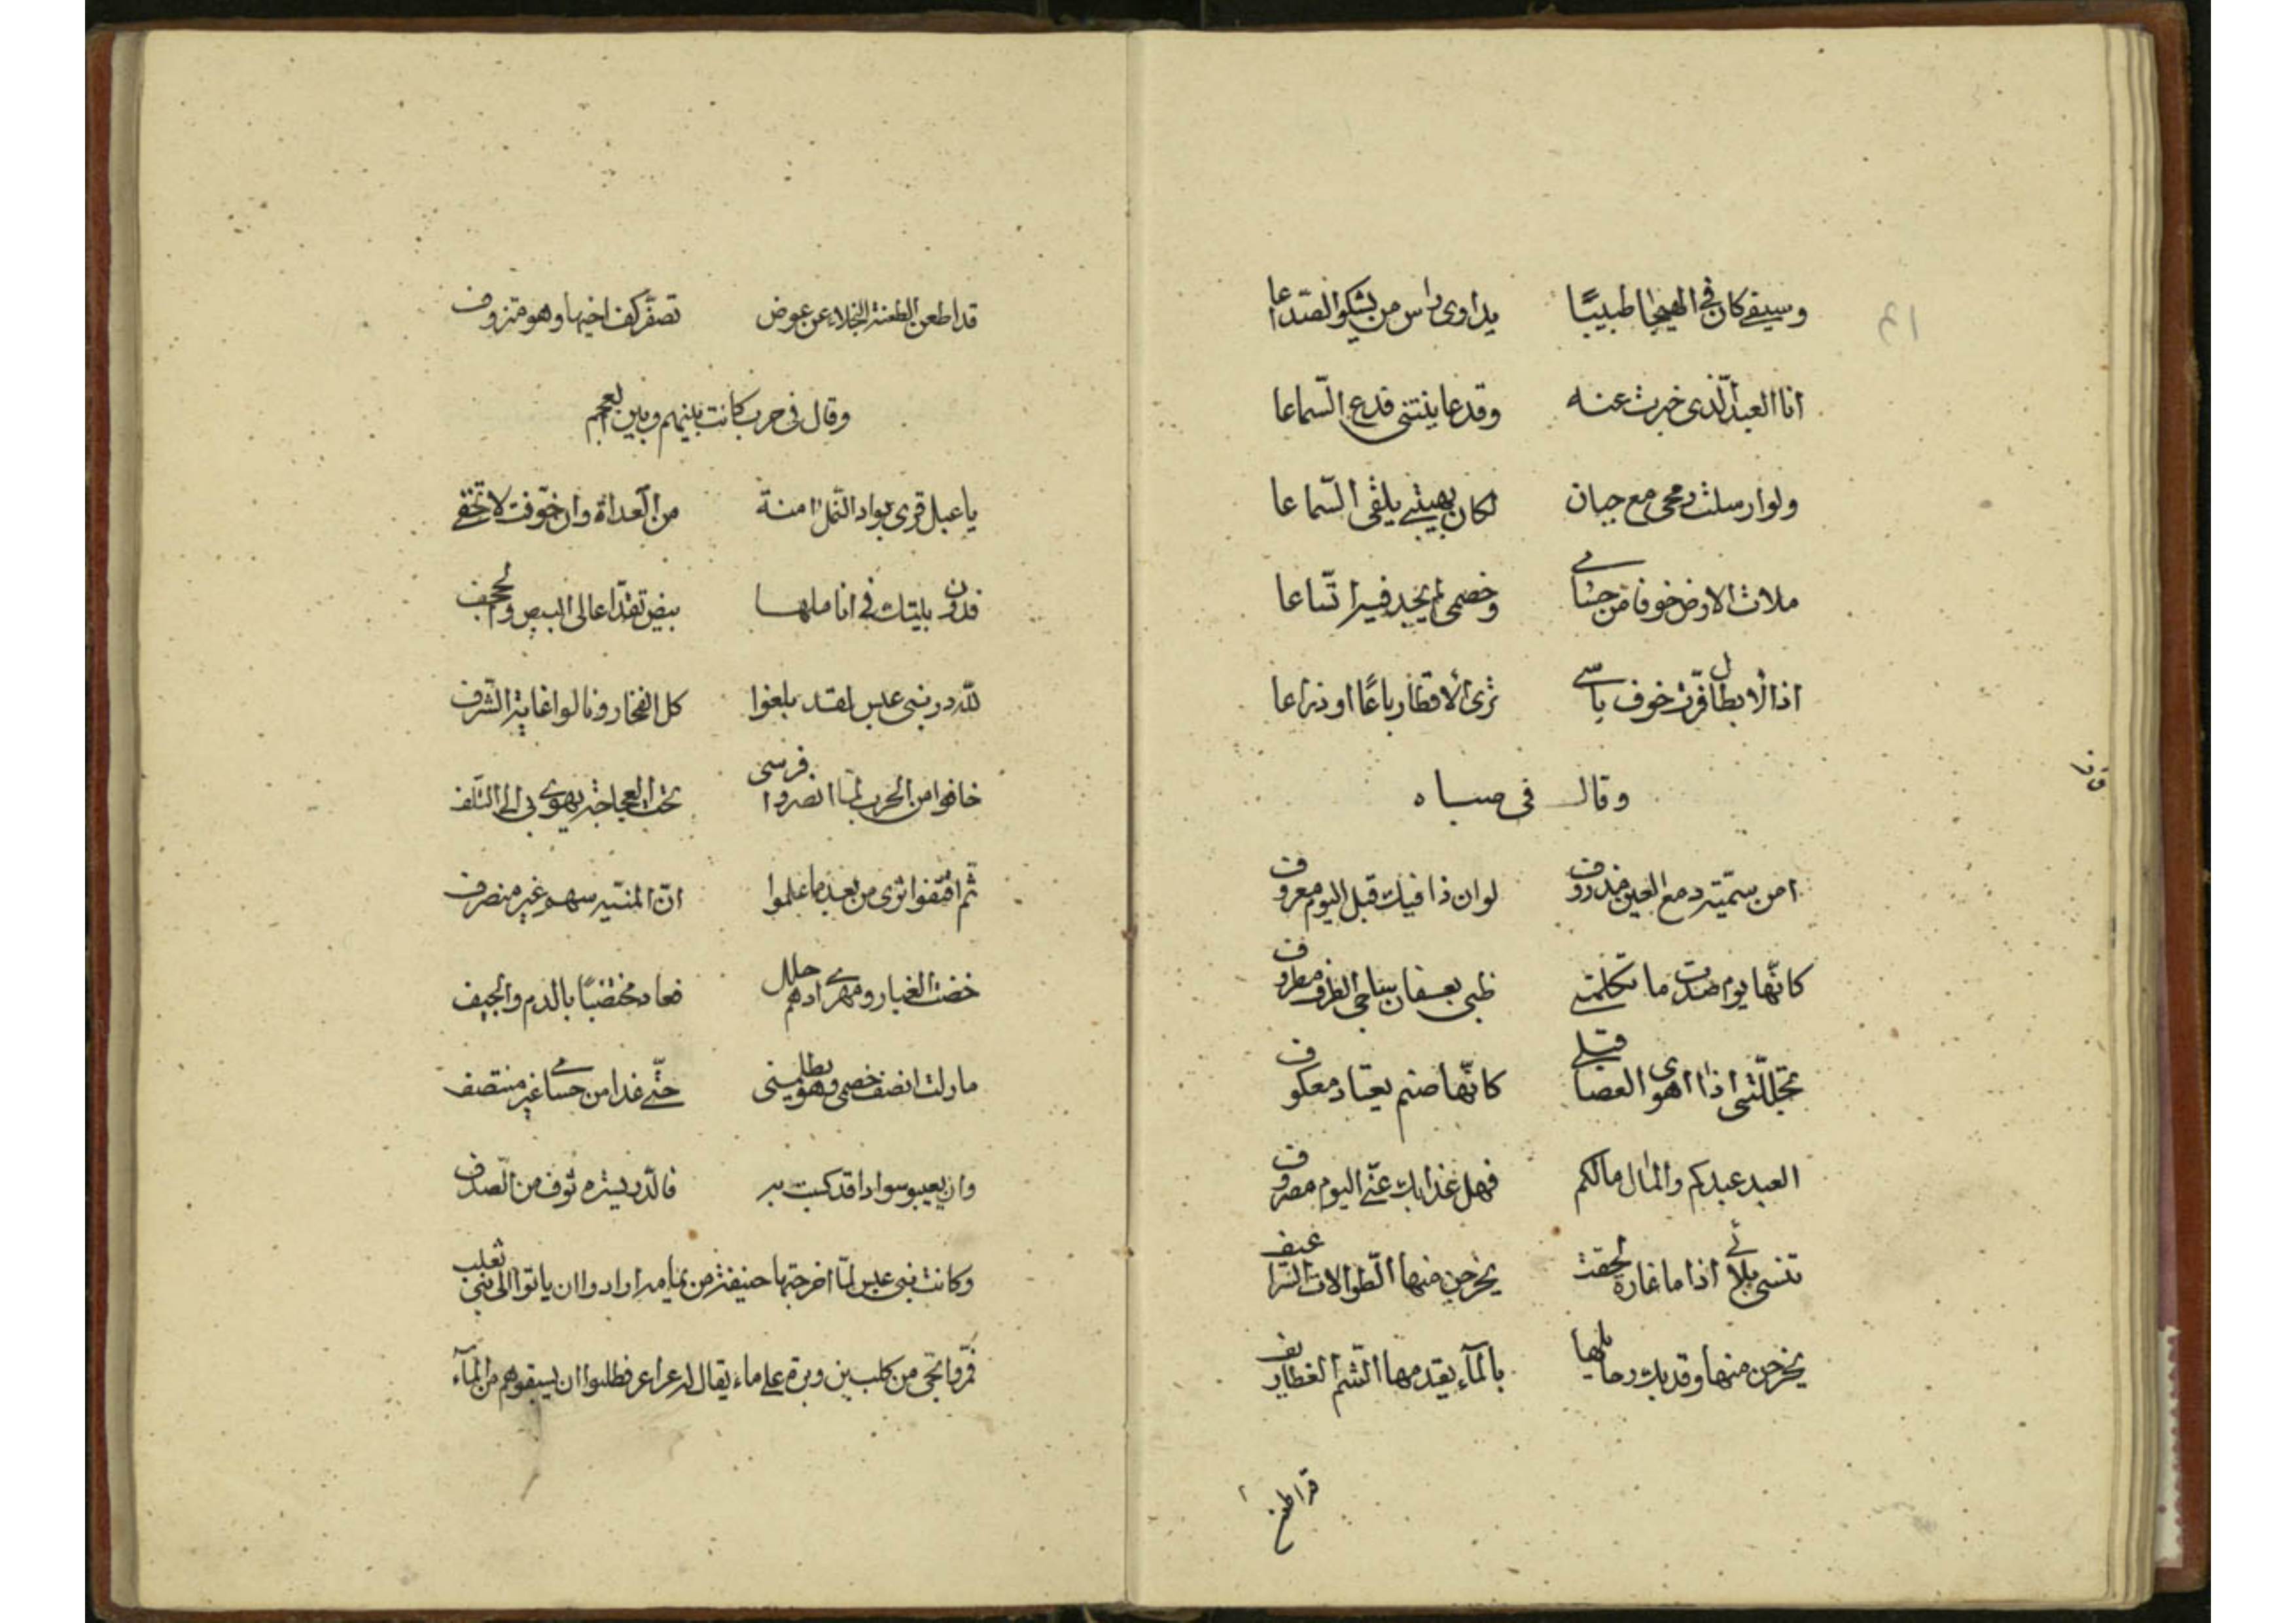 وسيفى كان فى الهيجا طبيبًا يداوى راس من يشكو الصّداعا
انا العبد الّذى خبرت عنه وقد عاينتنى فدع السّماعا
ولو ارسلت رمحى مع جبان لكان بهيبتى يلقى السّباعا
ملات الارض خوفا من حسامى وخصمى لم يجد فيها اتّساعا
اذا الابطال فرّت خوف باسى ترى الاقطار باعًا او ذراعا
وقال فى صباه
امن سميّة دمع العين مذروف لو ان ذا فيك قبل اليوم معروف
كانّها يوم صدّت ما تكلمنى ظبى بعسفان ساجى الطرف مطروف
تجلّلتنى اذا اهوى العصا قبلى كانّها صنم يعتاد معكوف
العبد عبدكم والمال مالكم فهل عذابك عنّى اليوم مصروف
تنسى بلائى اذا ما غارة لحقت يخرجن منها الطّوالات السّراعيف
يخرجن منها وقد بلت رحايلها بالمآء يقدمها الشّم الغطاريف
قد اطعن
قد اطعن الطعنة النجلاء عن عوض تصفّر كف اخيها وهو منزوف
وقال فى حرب كانت بينهم وبين العجم
يا عبل قرى بواد الرّمل امنة من العداة وان خوّفت لا تخفى
فدون بيتك فى اناملها بيض تقدّ اعالى البيض والحجف
لله در بنى عبس لقد بلغوا كل الفخار ونالوا غاية الشّرف
خافوا من الحرب لمّا ابصروا فرسى تحت العجاجة يهوى بى الى التّلف
ثم اقتفوا اثرى من بعد ما علموا انّ المنيّه سهم غير منصرف
خضت الغبار ومهرى ادهم حلك فعاد مختضبًا بالدم والجيف
مازلت انصف خصمى وهو يظلمنى حتّى غدا من حسامى غير منتصف
وان يعيبو سوادا قد كسيت به فالدّر يستره ثوب من الصّدف
وكانت بنى عبس لمّا اخرجتها حنيفة من يمامه ارادوا ان ياتوا الى بنى تغلب
فمّروا بحّى من كلب بن وبرة على ماء يقال له عراعر فطلبوا ان يسقوهم من المآء